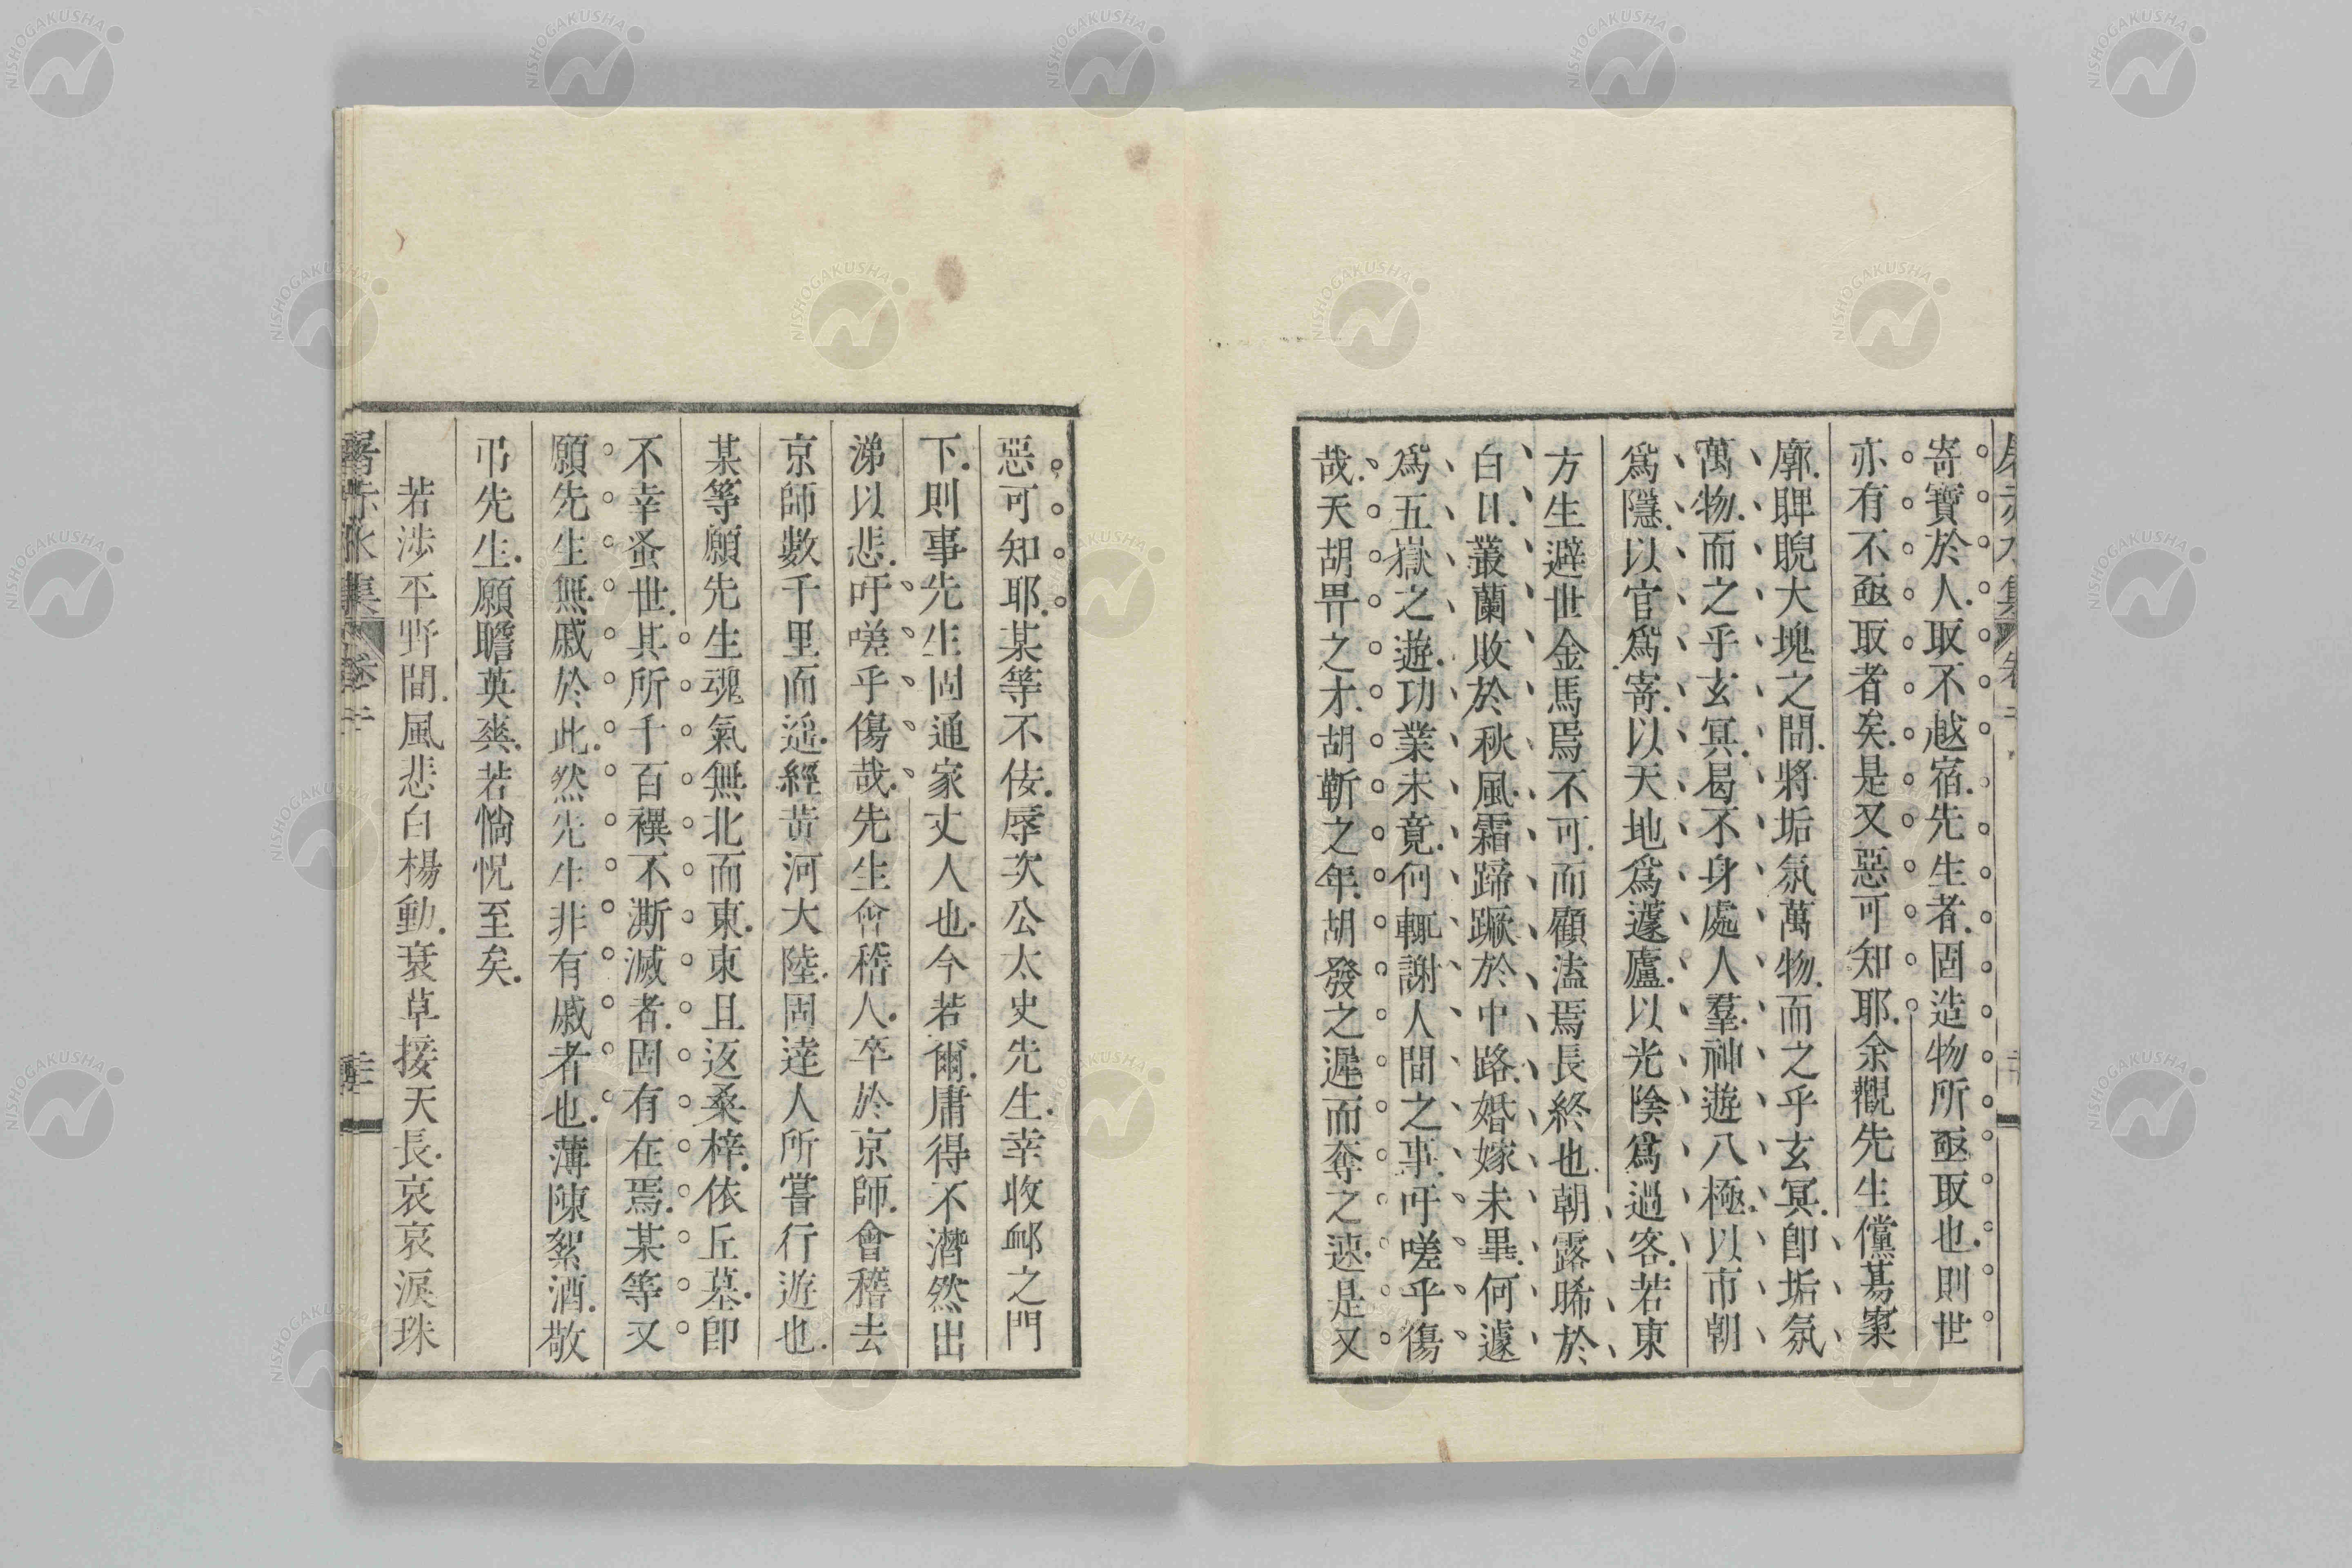 寄寶於人取不越宿先生者固造物所亟取也則世
亦有不亟取者矣是又惡可知耶余觀先生儻蕩寥
廓睥睨大塊之間將垢氛萬物而之乎玄冥卽垢氛
萬物而之乎玄冥曷不身處人羣神遊八極以市朝
爲隱以官爲寄以天地爲蘧廬以光陰爲過客若東
方生避世金馬焉不可而顧溘焉長終也朝露晞於
白日叢蘭敗於秋風霜蹄蹶於中路婚嫁未畢何遽
爲五嶽之遊功業未竟何輒謝人間之事吁嗟乎傷
哉天胡畀之才胡斬之年胡發之遲而奪之速是又
惡可知耶某等不佞辱次公太史先生幸收邮之門
下則事先生固通家丈人也今若爾庸得不潸然出
涕以悲吁嗟乎傷哉先生會稽人卒於京師會稽去
京師數千里而遥經黃河大陸固達人所嘗行遊也
某等願先生魂氣無北而東東且返桑梓依丘墓卽
不幸蚤世其所千百禩不澌滅者固有在焉某等又
願先生無戚於此然先生非有戚者也薄陳絮酒敬
弔先生願瞻英爽若惝怳至矣
若涉平野間風悲白楊動衰草接天長哀哀淚珠
NISHOGAKUSHA